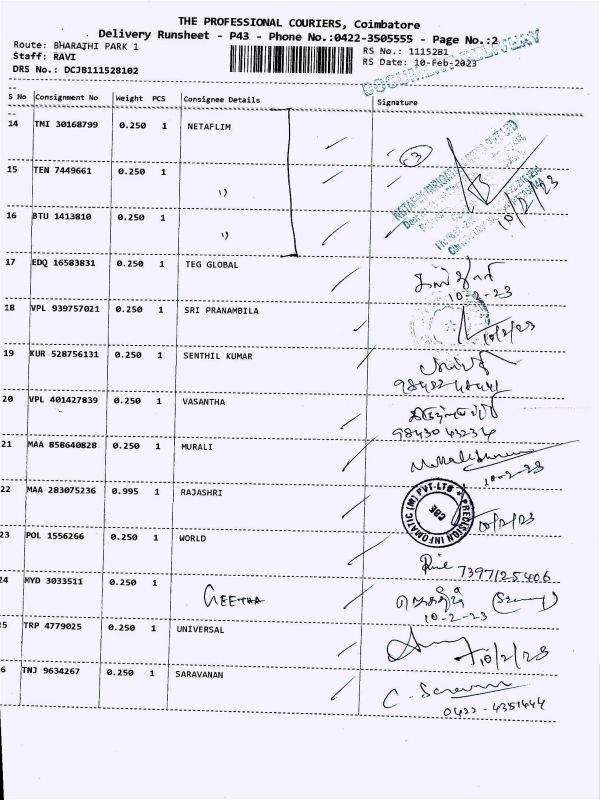 THE PROFESSIONAL COURIERS, Coimbatore
Delivery Runsheet - P43 - Phone No.:0422-3505555 - Page No.:2
Route: BHARATHI PARK 1
RS No.: 1115281
Staff: RAVI
RS Date: 10-Feb-2023
DRS No.: DCJB111528102
DOCUMENT DELIVERY
S No Consignment No Weight PCS Consignee Details Signature
14 TMI 30168799 0.250 1 NETAFLIM 3
15 TEN 7449661 0.250 1 ")
10/2/23
16 BTU 1413810 0.250 1 ")
17 EDQ 16583831 0.250 1 TEG GLOBAL
10-2-23
18 VPL 939757021 0.250 1 SRI PRANAMBILA 10/2/23
19 KUR 528756131 0.250 1 SENTHIL KUMAR
20 VPL 401427839 0.250 1 VASANTHA
21 MAA 858640828 0.250 1 MURALI
10-2-23
22 MAA 283075236 0.995 1 RAJASHRI 10/2/23
PRECISION INFOMATIC (M) PVT-LTD
CBE
23 POL 1556266 0.250 1 WORLD
7397125406
24 MYD 3033511 0.250 1 GEETHA
10-2-23
5 TRP 4779025 0.250 1 UNIVERSAL 10/2/23
6 TNJ 9634267 0.250 1 SARAVANAN
0422-4351444